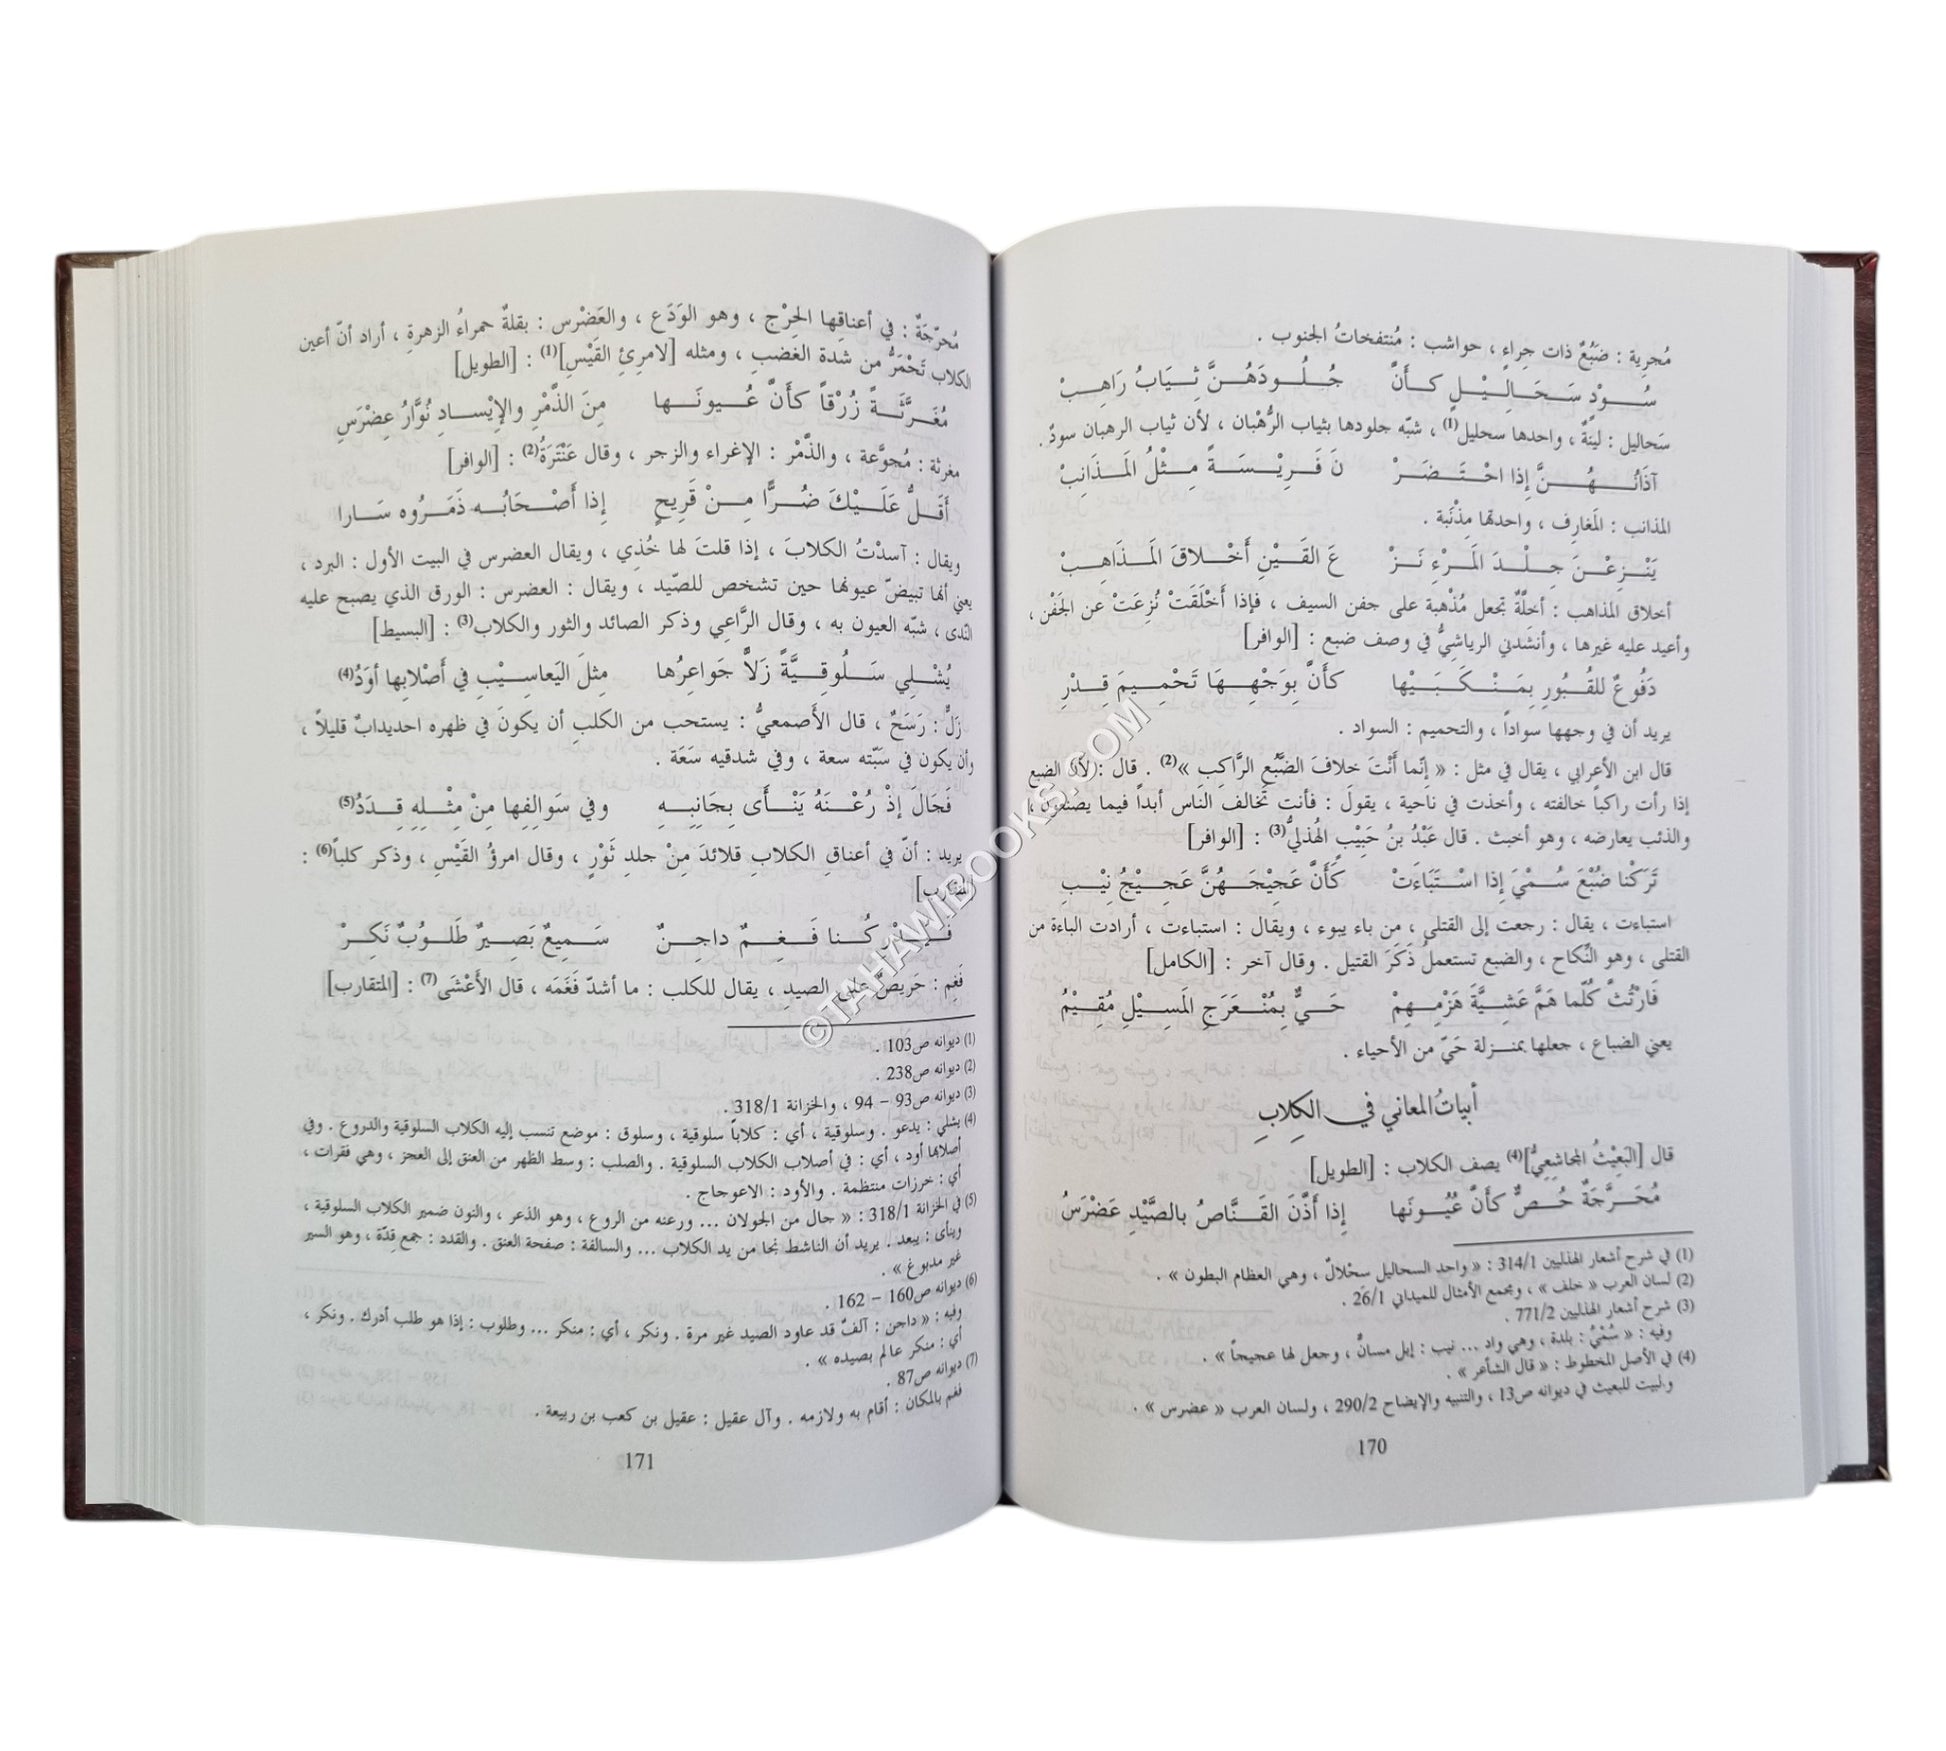 مُجرِية : ضَبُعٌ ذات جِراءٍ ، حواشب : مُنتفخاتُ الجنوب .
سُـــودٍ سَـحَـالِـيْـلٍ كَــأَنَّ جُــلُــودَهُــنَّ ثِـيَـابُ رَاهِــبْ
سَحاليل : لينةٌ ، واحدها سحليل(1) ، شبّه جلودها بثياب الرُّهْبان ، لأن ثياب الرهبان سودٌ .
آذَانُــهُــنَّ إِذا احْـتَـضَـرْ نَ فَـرِيْـسَـةً مِـثْـلُ الـمَـذَانِبْ
المذانب : المَغارِف ، واحدتها مِذْنَبة .
يَنْـزِعْـنَ جِـلْـدَ الـمَرْءِ نَـزْ عَ القَـيْنِ أَخْـلاقَ الـمَـذَاهِـبْ
أخلاق المذاهب : أخلّةٌ تجعل مُذْهبة على جفن السيف ، فإذا أخْلَقَتْ نُزِعَتْ عن الجَفْن ،
وأعيد عليه غيرها ، وأنشدني الرياشِيُّ في وصف ضبع : [الوافر]
دَفُوعٌ للقُبُورِ بِمَـنْـكَـبَـيْها كَأَنَّ بِوَجْهِـهَا تَحْمِـيمَ قِـدْرِ
يريد أن في وجهها سواداً ، والتحميم : السواد .
قال ابن الأعرابي ، يقال في مثل : « إنّما أنْتَ خلافَ الضَّبُعِ الرَّاكِبِ »(2) . قال : لأن الضبع
إذا رأت راكباً خالفته ، وأخذت في ناحية ، يقول : فأنت تخالف الناس أبداً فيما يصنعون ،
والذئب يعارضه ، وهو أخبث . قال عَبْدُ بنُ حَبِيْبٍ الهُذليُّ(3) : [الوافر]
تَرَكْنا ضُبْعَ سُمْيَ إِذا اسْتَبَاءَتْ كَأَنَّ عَجِيْجَهُنَّ عَجِـيْجُ نِيْـبِ
استباءت ، يقال : رجعت إلى القتلى ، من باء يبوء ، ويقال : استباءت ، أرادت الباءة من
القتلى ، وهو النِّكاح ، والضبع تستعملُ ذَكَرَ القتيل . وقال آخر : [الكامل]
فَارْتُثَّ كُلّما هَمَّ عَشِيَّةَ هَزْمِـهِمْ حَـيٌّ بِمُنْـعَـرَجِ المَسِيْلِ مُقِيْمُ
يعني الضباع ، جعلها بمنـزلة حَيّ من الأحياء .
أبياتُ المعاني في الكِلابِ
قال [البَعِيْثُ المجاشِعِيُّ](4) يصف الكلاب : [الطويل]
مُحَرَّجَةٌ حُـصٌّ كَأَنَّ عُيُونَها إذا أَذَّنَ القَـنَّاصُ بالصَّيْدِ عَضْرَسُ
(1) في شرح أشعار الهذليين 314/1 : « واحد السحاليل سحْلالٌ ، وهي العظام البطون » .
(2) لسان العرب « خلف » ، ومجمع الأمثال للميداني 26/1 .
(3) شرح أشعار الهذليين 771/2 .
وفيه : « سُمْيُ : بلدة ، وهي واد ... نيب : إبل مسانٌّ ، وجعل لها عجيجاً » .
(4) في الأصل المخطوط : « قال الشاعر » .
والبيت للبعيث في ديوانه ص13 ، والتنبيه والإيضاح 290/2 ، ولسان العرب « عضرس » .
170
مُحرّجَةٌ : في أعناقِها الحِرْج ، وهو الوَدَع ، والعَضْرس : بقلةٌ حمراءُ الزهرةِ ، أراد أنّ أعين
الكلاب تَحْمَرُّ من شدة الغضبِ ، ومثله [لامرئِ القَيْسِ](1) : [الطويل]
مُغَـرَّثَـةً زُرْقاً كَأَنَّ عُـيـونَـهـا مِنَ الذَّمْرِ والإِيْسـادِ نُوَّارُ عِضْرَسِ
مغرثة : مُجوَّعة ، والذَّمْر : الإغراء والزجر ، وقال عَنْتَرَةُ(2) : [الوافر]
أَقَـلُّ عَلَـيْكَ ضُـرًّا مِـنْ قَرِيحٍ إِذا أَصْـحَابُـه ذَمَـرُوه سَـارا
ويقال : آسدْتُ الكلابَ ، إذا قلتَ لها خُذِي ، ويقال العضرس في البيت الأول : البرد ،
يعني أنها تبيضّ عيونها حين تشخص للصّيد ، ويقال : العضرس : الورق الذي يصبح عليه
النّدى ، شبّه العيون به ، وقال الرَّاعِي وذكر الصائد والثور والكلاب(3) : [البسيط]
يُشْـلِي سَـلُوقِـيَّةً زَلاًّ جَواعِرُها مِثلَ اليَعاسِـيْبِ في أَصْلابِها أَوَدُ(4)
زَلٌّ : رَسَحٌ ، قال الأَصمعيُّ : يستحب من الكلبِ أن يكونَ في ظهره احديدابٌ قليلاً ،
وأن يكون في سَبّته سعة ، وفي شدقيه سَعَة .
فَجَالَ إِذْ رُعْـنَهُ يَنْـأَى بِجَانِبِـهِ وفي سَوالِفِها مِنْ مِثْـلِهِ قِـدَدُ(5)
يريد : أنّ في أعناقِ الكلابِ قلائدَ مِنْ جلدِ ثَوْرٍ ، وقال امرؤُ القَيْسِ ، وذكر كلباً(6) :
[المتقارب]
فَـيُـدْرِكُـنا فَـغِـمٌ داجِـنٌ سَـمِيعٌ بَصِـيرٌ طَلُـوبٌ نَكِـرْ
فَغِم : حَريصٌ على الصيدِ ، يقال للكلب : ما أشدّ فَغَمَه ، قال الأَعْشَى(7) : [المتقارب]
(1) ديوانه ص103 .
(2) ديوانه ص238 .
(3) ديوانه ص93 – 94 ، والخزانة 318/1 .
(4) يشلي : يدعو . وسلوقية ، أي : كلاباً سلوقية ، وسلوق : موضع تنسب إليه الكلاب السلوقية والدروع . وفي
أصلابها أود ، أي : في أصلاب الكلاب السلوقية . والصلب : وسط الظهر من العنق إلى العجز ، وهي فقرات ،
أي : خرزات منتظمة . والأود : الاعوجاج .
(5) في الخزانة 318/1 : « جال من الجولان ... ورعنه من الروع ، وهو الذعر ، والنون ضمير الكلاب السلوقية ،
وينأى : يبعد . يريد أن الناشط نحا من يد الكلاب ... والسالفة : صفحة العنق . والقدد : جمع قِدّة ، وهو السير
غير مدبوغ » .
(6) ديوانه ص160 – 162 .
وفيه : « داجن : آلفٌ قد عاود الصيد غير مرة . ونكر ، أي : منكر ... وطلوب : إذا هو طلب أدرك . ونكر ،
أي : منكر عالم بصيده » .
(7) ديوانه ص87 .
فغم بالمكان : أقام به ولازمه . وآل عقيل : عقيل بن كعب بن ربيعة .
171
©TAHAWIBOOKS.COM